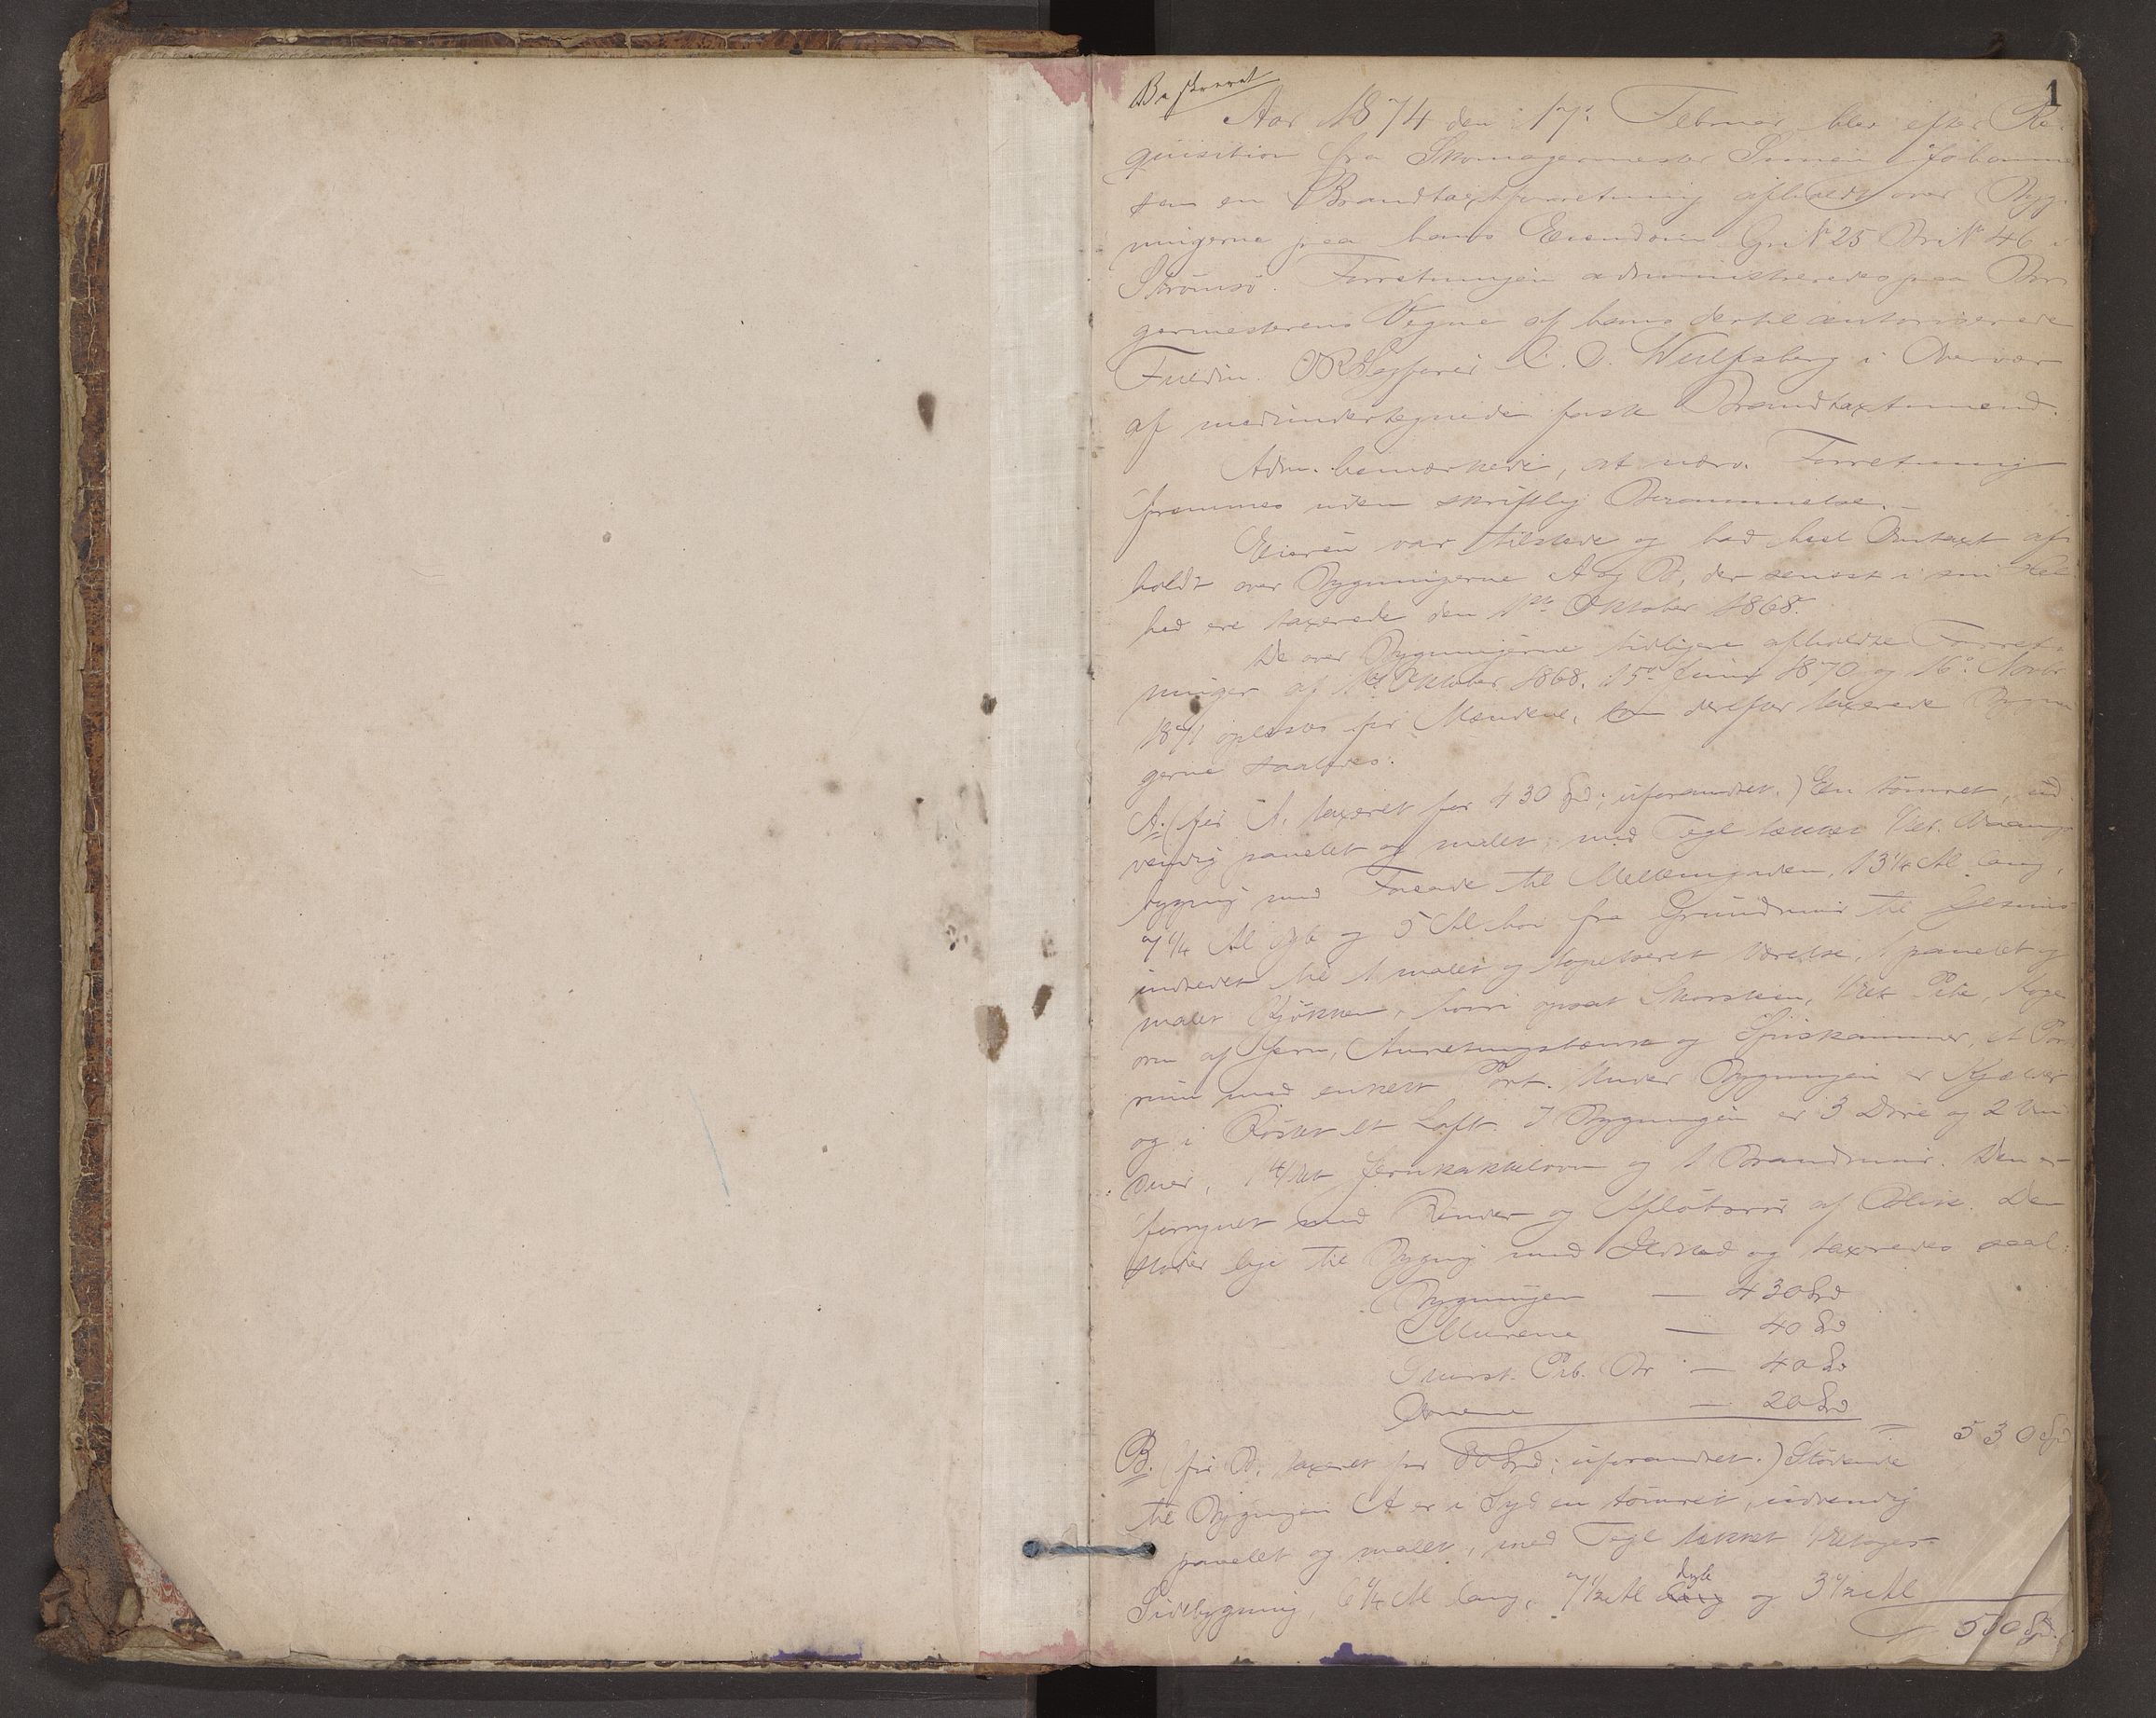 1
Beskrevet
Aar 1874 den 17. Februar blev efter Re-
quisition fra Skomagermester Simen Johanne
sen en Brandtaxtforretning afholdt over Byg-
ningerne paa hans Eiendom Gr: N 25 Br: N 46 i
Strømsø. Forretningen administreredes paa Bor-
germesterens Vegne af hans dertil autoriserede
Fuldm. Sagfører C. S. Wulfsberg i Overvær
af medundertegnede faste Brandtaxtmænd.
Adm. bemærkede, at nærv. Forretning
fremmes uden skriftlig Berammelse.
Eieren var tilstede og bad heel Omtaxt af-
holdt over Bygningerne A og B, der senest i sin Hel-
hed ere taxerede den 1ste Oktober 1868.
De over Bygningerne tidligere afholdte Forret-
ninger af 1st Oktober 1868, 15de Juni 1870 og 16de Novbr
1871 oplæstes for Mændene, som derefter taxerede Bygnin
gerne saaledes:
A. (før A, taxeret for 430 Spd; uforandret.) En tømret, ud-
vendig panelet og malet, med Tegl tækket 1 Et. Vaanings
bygning med Facade til Mellemgaden, 13 1/4 Al lang,
7 1/4 Al dyb og 5 Al høi fra Grundmur til Gesims
indredet til 1 malet og tapetseret Værelse, 1 panelet og
malet Kjøkken, hvori opsat Skorsten, 1 Et. Pibe, Koge-
ovn af Jern, Anretningsbænk og Spiskammer, et Por-
rum med enkelt Port. Under Bygningen er Kjælder
og i Røstet et Loft. I Bygningen er 3 Døre og 2 Vin
duer, 1 4 Et. Jernkakkelovn og 1 Brandmur. Den er
forsynet med Render og Afløbsrør af Blik. Den
støder lige til Bygning med Ildsted og taxeredes saal:
Bygningen — 430 Spd
Murene — 40 Spd
Skorst. Pib. Br — 40 Spd
Ovnene — 20 Spd
530 Spd
B. (før B, taxeret for 80 Spd; uforandret.) Stødende
til Bygningen A er i Syd en tømret, udvendig
panelet og malet, med Tegl tækket 1 Etages
Sidebygning, 6 1/4 Al lang, 7 1/2 Al dyb og 3 1/2 Al
530 Spd.